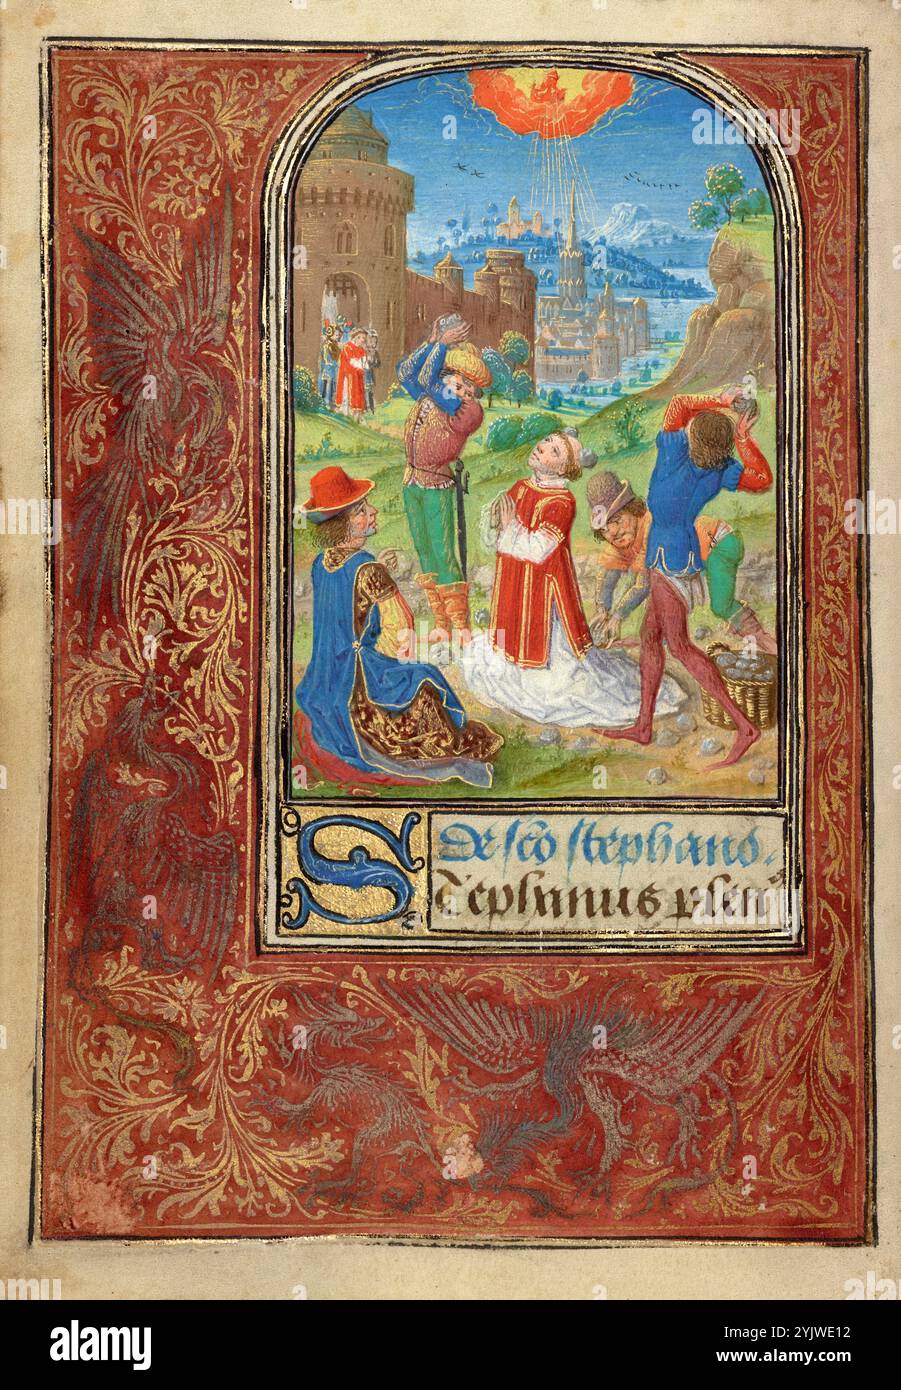 De sco stephano.
Stephanus plen
alamy
Image ID: 2YJWE12
www.alamy.com